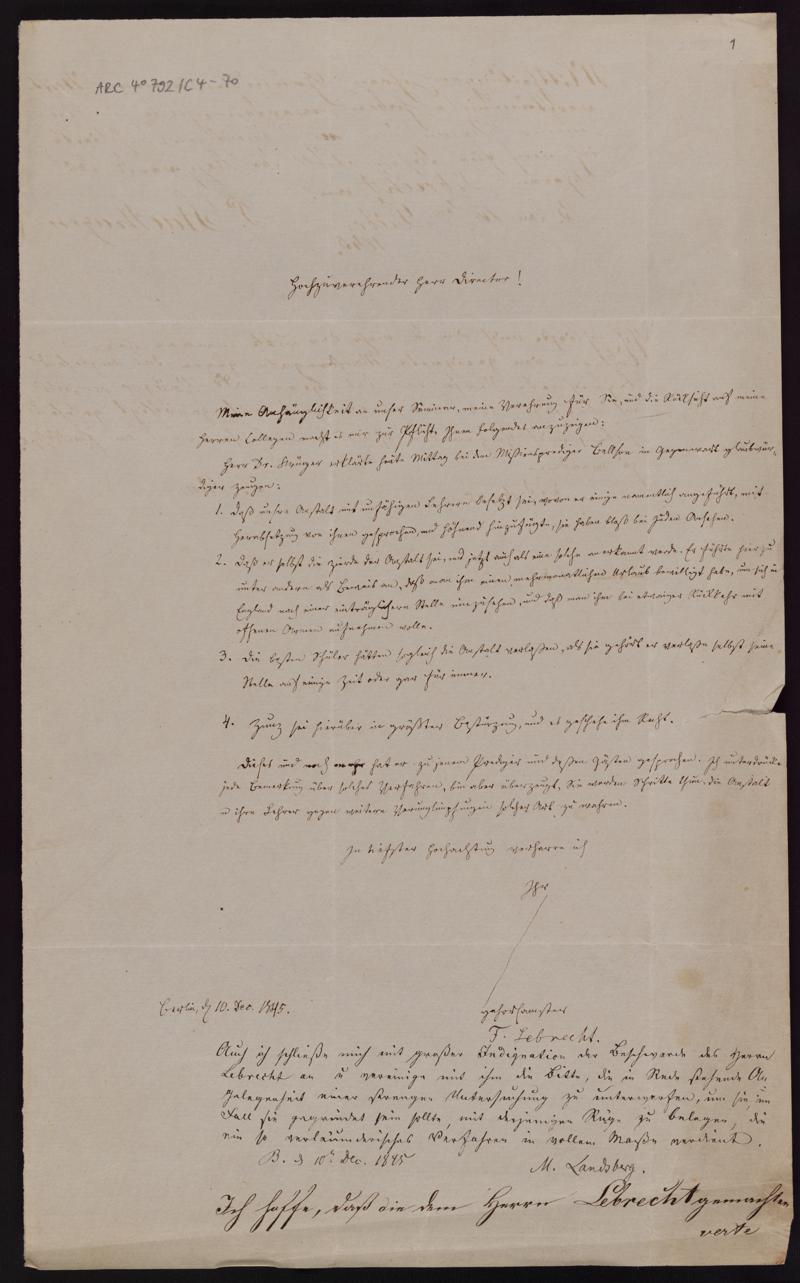 1
ARC 4° 792/C4-70
Hochzuverehrender Herr Director!
Meine Anhänglichkeit an unser Seminar, meine Verehrung für Sie, und die Rücksicht auf meine
Herren Collegen macht es mir zur Pflicht, Ihnen Folgendes anzuzeigen:
Herr Dr. erklärte heute Mittag bei dem Missionsprediger Bellson in Gegenwart glaubwür-
diger Zeugen:
1. Daß unsre Anstalt mit unfähigen Lehrern besetzt sei, wovon er einige namentlich angeführt, mit
Herabsetzung von ihnen gesprochen, und höhnend hinzufügte, sie haben bloß bei Juden Ansehen.
2. Daß er selbst die Zierde der Anstalt sei, und jetzt auch als eine solche anerkannt werde. Er führte hierzu
unter andern als Beweis an, daß man ihm einen mehrmonatlichen Urlaub bewilligt habe, um sich in
England nach einer einträglichern Stelle umzusehen, und daß man ihn bei etwaiger Rückkehr mit
offenen Armen aufnehmen wolle.
3. Die besten Schüler hätten sogleich die Anstalt verlaßen, als sie gehört er verlaße selbst seine
Stelle auf einige Zeit oder gar für immer.
4. Zunz sei hierüber in größter Bestürzung, und es geschehe ihm Recht.
Dieses und noch mehr hat er zu jenem Prediger und deßen Gästen gesprochen. Ich unterdrücke
jede Bemerkung über solches Verfahren, bin aber überzeugt, Sie werden Schritte thun, die Anstalt
u ihre Lehrer gegen weitere Verunglimpfungen solcher Art zu wahren.
In tiefster Hochachtung verharre ich
Ihr
Berlin, d 10. Dec. 1845.
gehorsamster
F. Lebrecht.
Auch ich schließe mich mit großer Indignation der Beschwerde des Herrn
Lebrecht an u vereinige mit ihm die Bitte, die in Rede stehende An
gelegenheit einer strengen Untersuchung zu unterwerfen, um sie, im
Fall sie gegründet sein sollte, mit derjenigen Rüge zu belegen, die
ein so verläumderisches Verfahren in vollem Maße verdient.
B. d 10t Dec. 1845
M. Landsberg.
Ich hoffe, daß die dem Herrn Lebrecht gemachten
verte